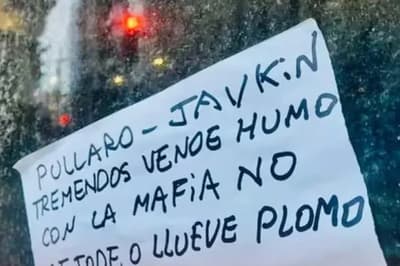 PULLARO - JAVKIN
TREMENDOS VENDE HUMO
CON LA MAFIA NO
JODE, O LLUEVE PLOMO